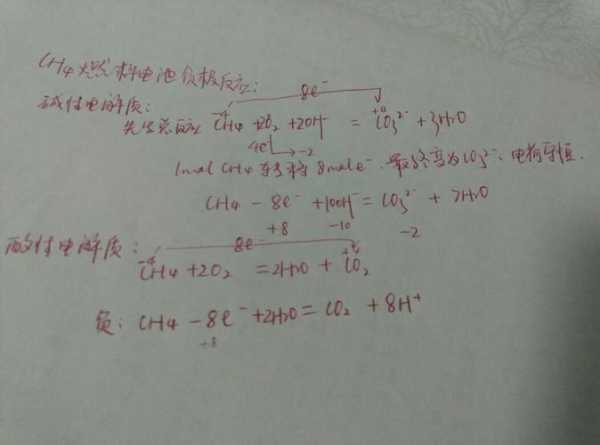 CH4燃料电池负极反应:
碱性电解质:
8e⁻
-4 +4
先写总反应 CH4 + 2O2 + 2OH⁻ = CO3²⁻ + 3H2O
4e⁻ → -2
1mol CH4 转移 8mole⁻, 最终变为CO3²⁻、电荷守恒.
CH4 - 8e⁻ + 10OH⁻ = CO3²⁻ + 7H2O
+8 -10 -2
酸性电解质:
8e⁻
-4 +4
CH4 + 2O2 = 2H2O + CO2
负: CH4 - 8e⁻ + 2H2O = CO2 + 8H⁺
+8